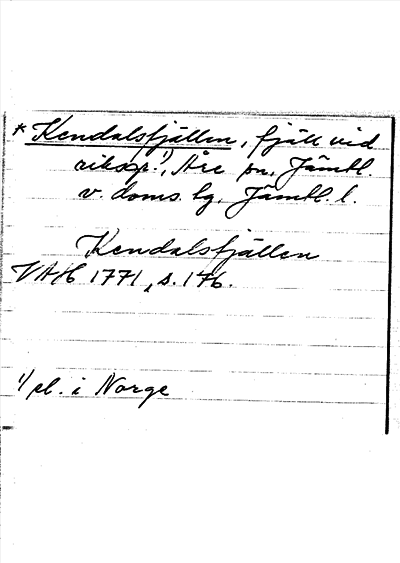 * Kendalsfjällen, fjäll vid
riksgr.1), Åre sn, Jämtl.
v. doms. lg, Jämtl. l.
Kendalsfjällen
VAH 1771, s. 176.
1) el. i Norge